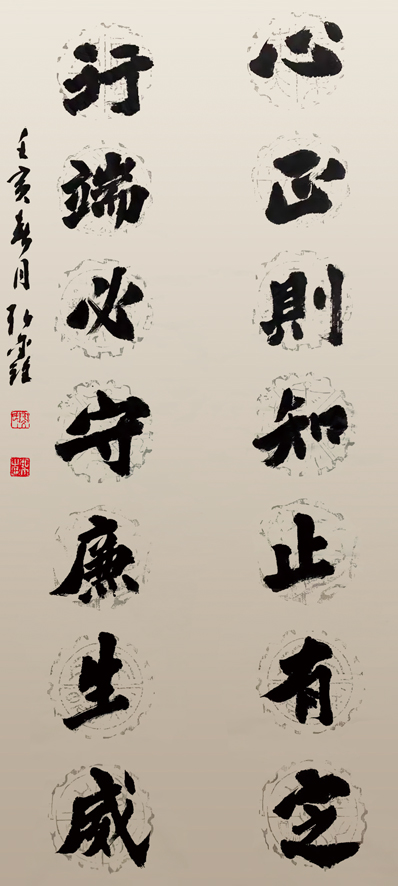 心正則知止有定
行端必守廉生威
壬寅春月